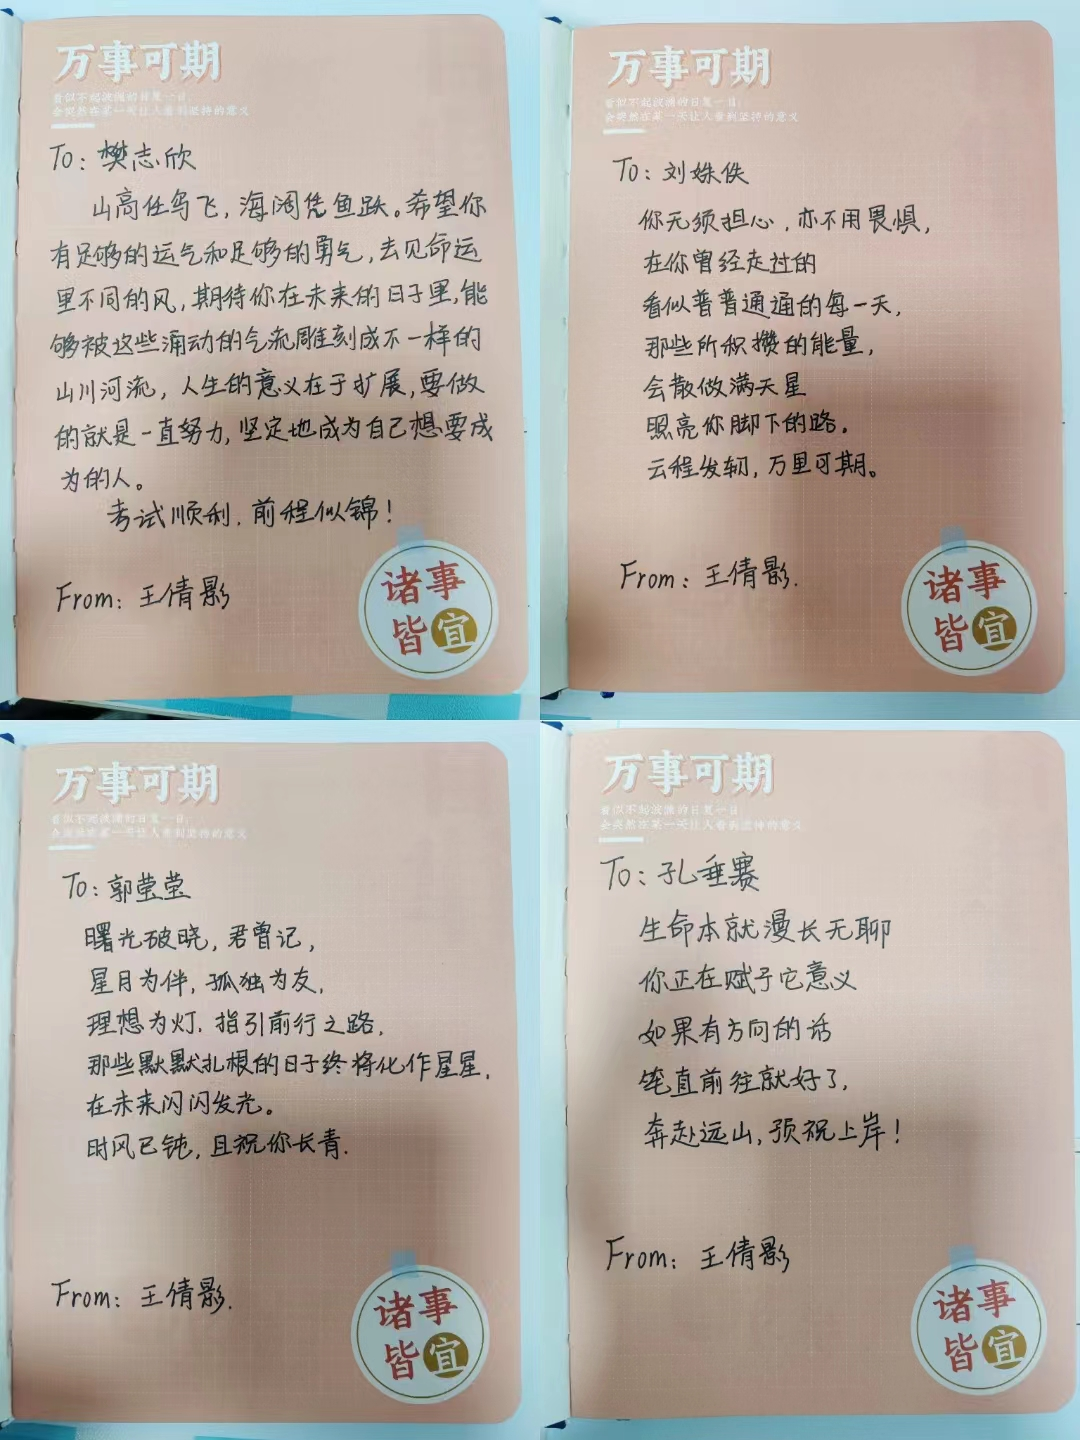 万事可期
看似不起波澜的日复一日,
会突然在某一天让人看到坚持的意义
To: 樊志欣
山高任鸟飞，海阔凭鱼跃。希望你
有足够的运气和足够的勇气，去见命运
里不同的风，期待你在未来的日子里，能
够被这些涌动的气流雕刻成不一样的
山川河流，人生的意义在于扩展，要做
的就是一直努力，坚定地成为自己想要成
为的人。
考试顺利，前程似锦！
From: 王倩影
诸事
皆宜
万事可期
看似不起波澜的日复一日,
会突然在某一天让人看到坚持的意义
To: 刘姝佚
你无须担心，亦不用畏惧，
在你曾经走过的
看似普普通通的每一天，
那些所积攒的能量，
会散做满天星
照亮你脚下的路。
云程发轫，万里可期。
From: 王倩影.
诸事
皆宜
万事可期
看似不起波澜的日复一日,
会突然在某一天让人看到坚持的意义
To: 郭莹莹
曙光破晓，君曾记，
星月为伴，孤独为友，
理想为灯，指引前行之路，
那些默默扎根的日子终将化作星星，
在未来闪闪发光。
时风已钝，且祝你长青.
From: 王倩影.
诸事
皆宜
万事可期
看似不起波澜的日复一日,
会突然在某一天让人看到坚持的意义
To: 孔垂赛
生命本就漫长无聊
你正在赋予它意义
如果有方向的话
笔直前往就好了，
奔赴远山，预祝上岸！
From: 王倩影
诸事
皆宜